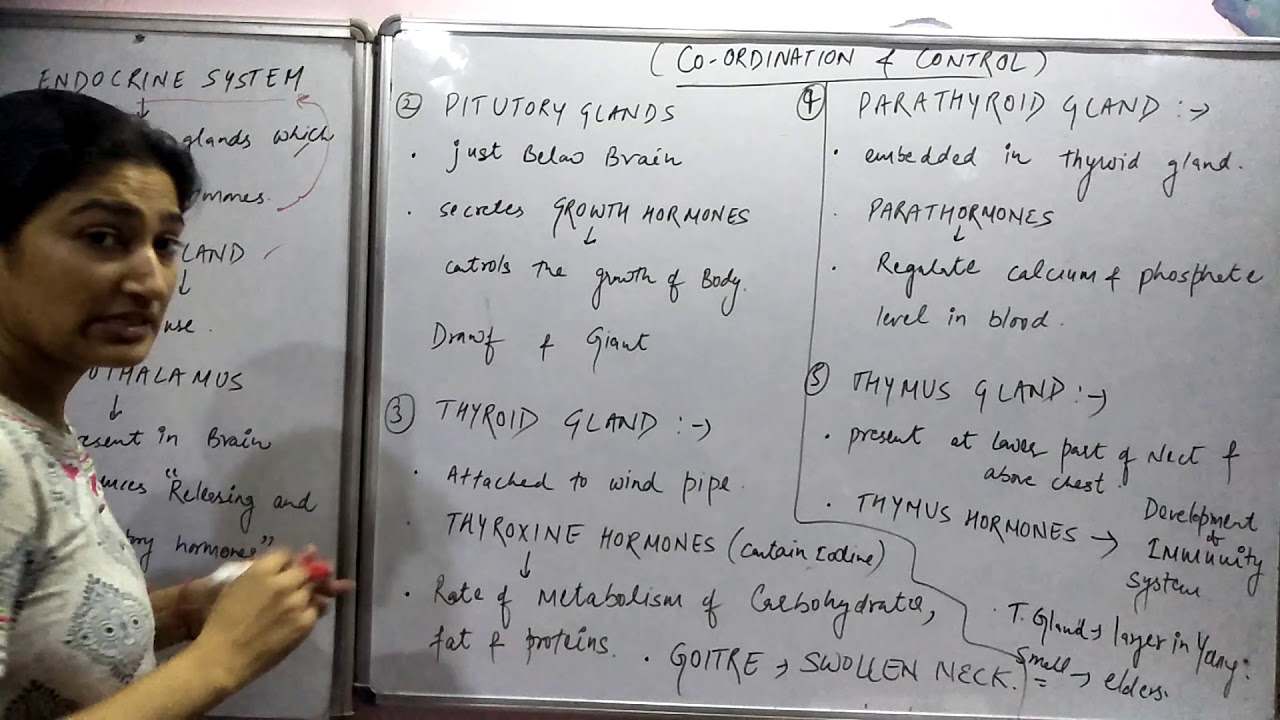 ENDOCRINE SYSTEM
glands which
LAND
THALAMUS
in Brain
"Releasing and
hormones"
(CO-ORDINATION & CONTROL)
② PITUTORY GLANDS
• just Below Brain
• secretes GROWTH HORMONES
↓
controls the growth of Body.
Drawf & Giant
③ THYROID GLAND :→
• Attached to wind pipe.
• THYROXINE HORMONES (contain Iodine)
↓
• Rate of Metabolism of Carbohydrate,
fat & proteins.
• GOITRE → SWOLLEN NECK.
④ PARATHYROID GLAND :→
• embedded in thyroid gland.
• PARATHORMONES
↓
• Regulate calcium & phosphete
level in blood.
⑤ THYMUS GLAND :→
• present at lower part of Nect &
above chest.
• THYMUS HORMONES → Development
of
Immunity
System
• T. Gland → layer in Yong:
Small → elders.